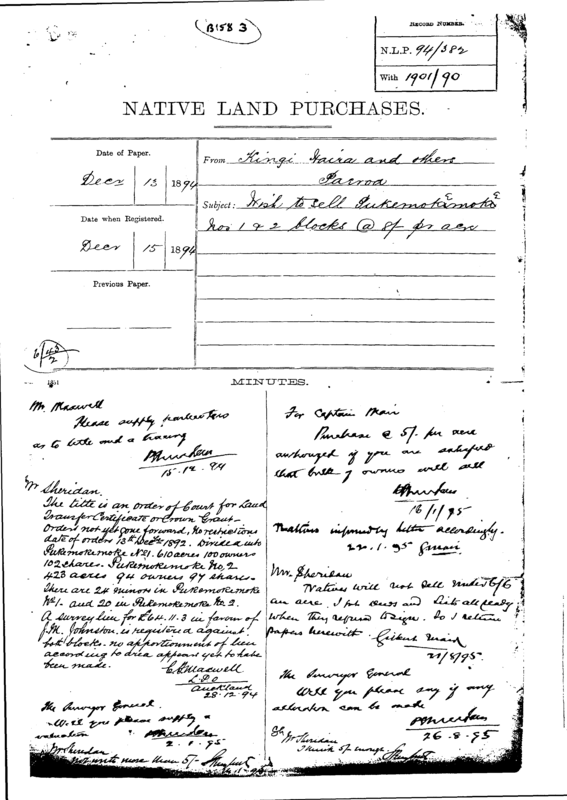 B158 3
RECORD NUMBER.
N.L.P. 94/382
With 1901/90
NATIVE LAND PURCHASES.
Date of Paper.
Decr 13 1894
Date when Registered.
Decr 15 1894
Previous Paper.
From Kingi Haira and others
Paeroa
Subject: Wish to sell Pukemokemoke
Nos 1 & 2 blocks @ 8/ pr acre
MINUTES.
Mr. Maxwell
Please supply particulars
as to title and a tracing
15.12.94
Mr Sheridan.
The title is an order of Court for Land
Transfer Certificate or Crown Grant.
Orders not yet gone forward, No restrictions
date of orders 13th Decr 1892. Divided into
Pukemokemoke No 1. 610 acres 100 owners
102 shares. Pukemokemoke No, 2
423 acres 94 owners 97 shares.
There are 24 minors in Pukemokemoke
No 1. and 20 in Pukemokemoke No 2.
A survey lien for £64.11.3 in favour of
J.M. Johnston is registered against
both blocks. no apportionment of lien
according to area appears yet to have
been made.
Maxwell
L.P.O
Auckland
28.12.94
The Surveyor General.
Will you please supply a
valuation
2.1.95
Mr Sheridan
not worth more than 5/-
For Captain Mair
Purchase @ 5/. per acre
authorized if you are satisfied
that bulk of owners will sell
16/1/95
Natives informed by letter accordingly.
22.1.95 GMair
Mr. Sheridan
Natives will not sell under 6/6
an acre. I got deeds and lists all ready
when they refused to sign. So I return
papers herewith Gilbert Mair
21/8/95
The Surveyor General
Will you please say if any
alteration can be made
26.8.95
Mr Sheridan
I think 5/- enough